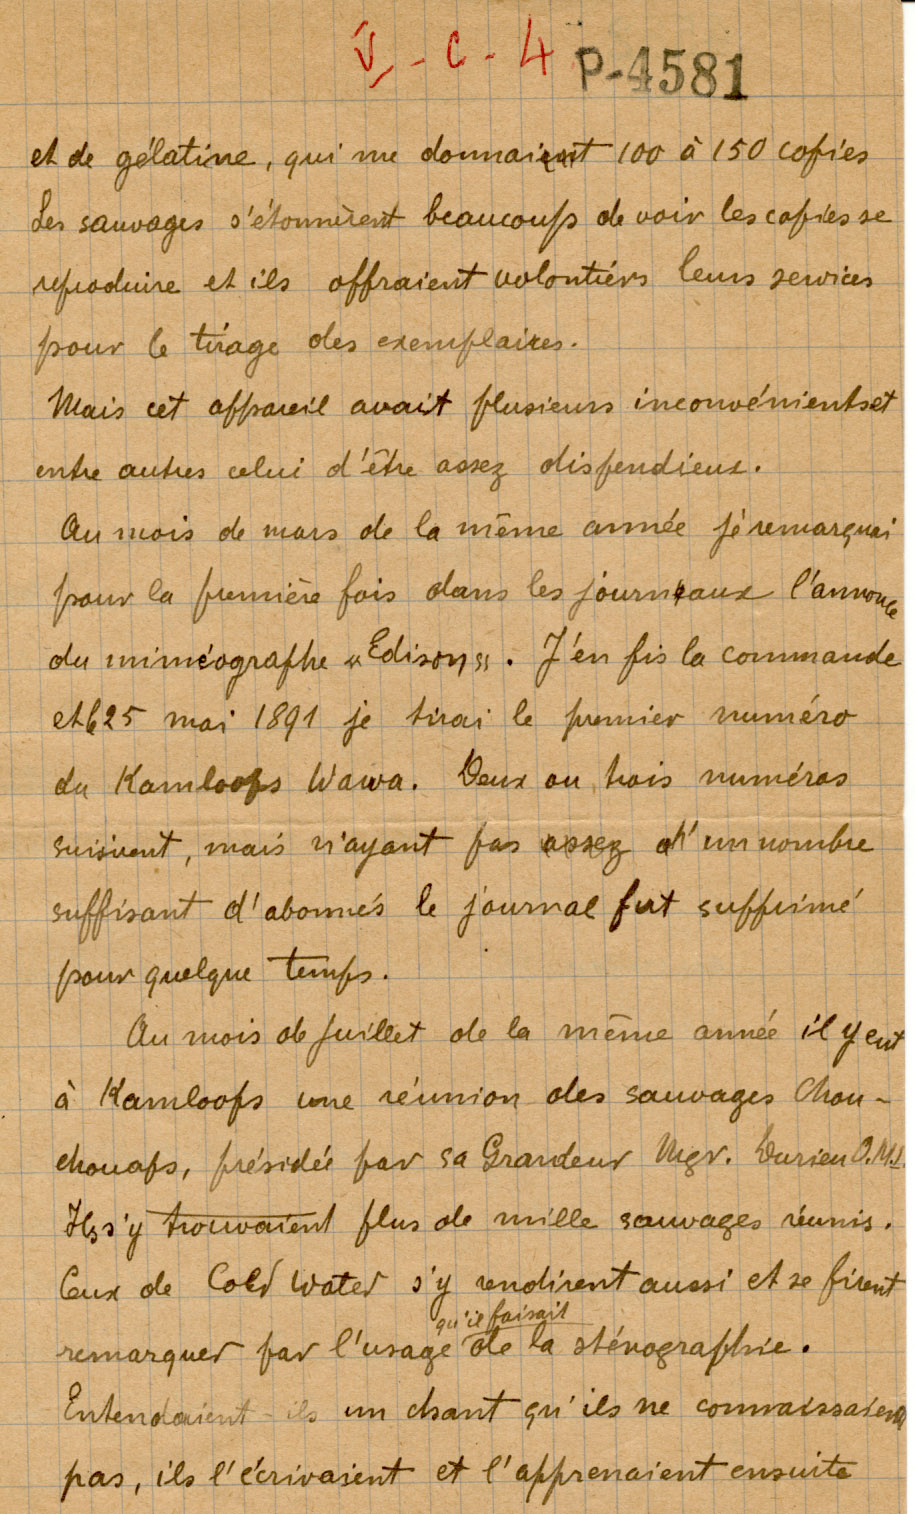 V - C - 4 P-4581
et de gélatine, qui me donnaient 100 à 150 copies
Les sauvages s'étonnèrent beaucoup de voir les copies se
reproduire et ils offraient volontiers leurs services
pour le tirage des exemplaires.
Mais cet appareil avait plusieurs inconvénients et
entre autres celui d'être assez dispendieux.
Au mois de mars de la même année je remarquai
pour la première fois dans les journaux l'annonce
du miméographe « Edison ». J'en fis la commande
et le 25 mai 1891 je tirai le premier numéro
du Kamloops Wawa. Deux ou trois numéros
suivirent, mais n'ayant pas assez d'un nombre
suffisant d'abonnés le journal fut supprimé
pour quelque temps.
Au mois de juillet de la même année il y eut
à Kamloops une réunion des sauvages Chou-
chouaps, présidée par sa Grandeur Mgr. Durieu O.M.I.
Ils s'y trouvaient plus de mille sauvages réunis.
Ceux de Cold Water s'y rendirent aussi et se firent
qu'il faisait
remarquer par l'usage de la sténographie.
Entendaient-ils un chant qu'ils ne connaissaient
pas, ils l'écrivaient et l'apprenaient ensuite